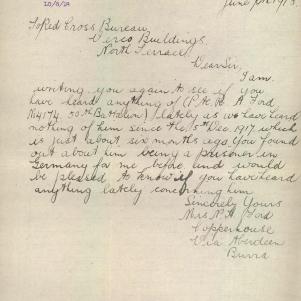 10/6/18
June
To Red Cross Bureau
Verco Buildings
North Terrace
Dear Sir,
I am
writing you again to see if you
have heard anything of (P.te R. A Ford
No 4174. 50th Battalion) lately as we have heard
nothing of him since the 15th Dec. 1917 which
is just about six months ago You found
out about him being a prisoner in
Germany for me before and would
be pleased to know if you have heard
anything lately concerning him
Sincerely Yours
Mrs P. A. Ford
Copperhouse
Via Aberdeen
Burra